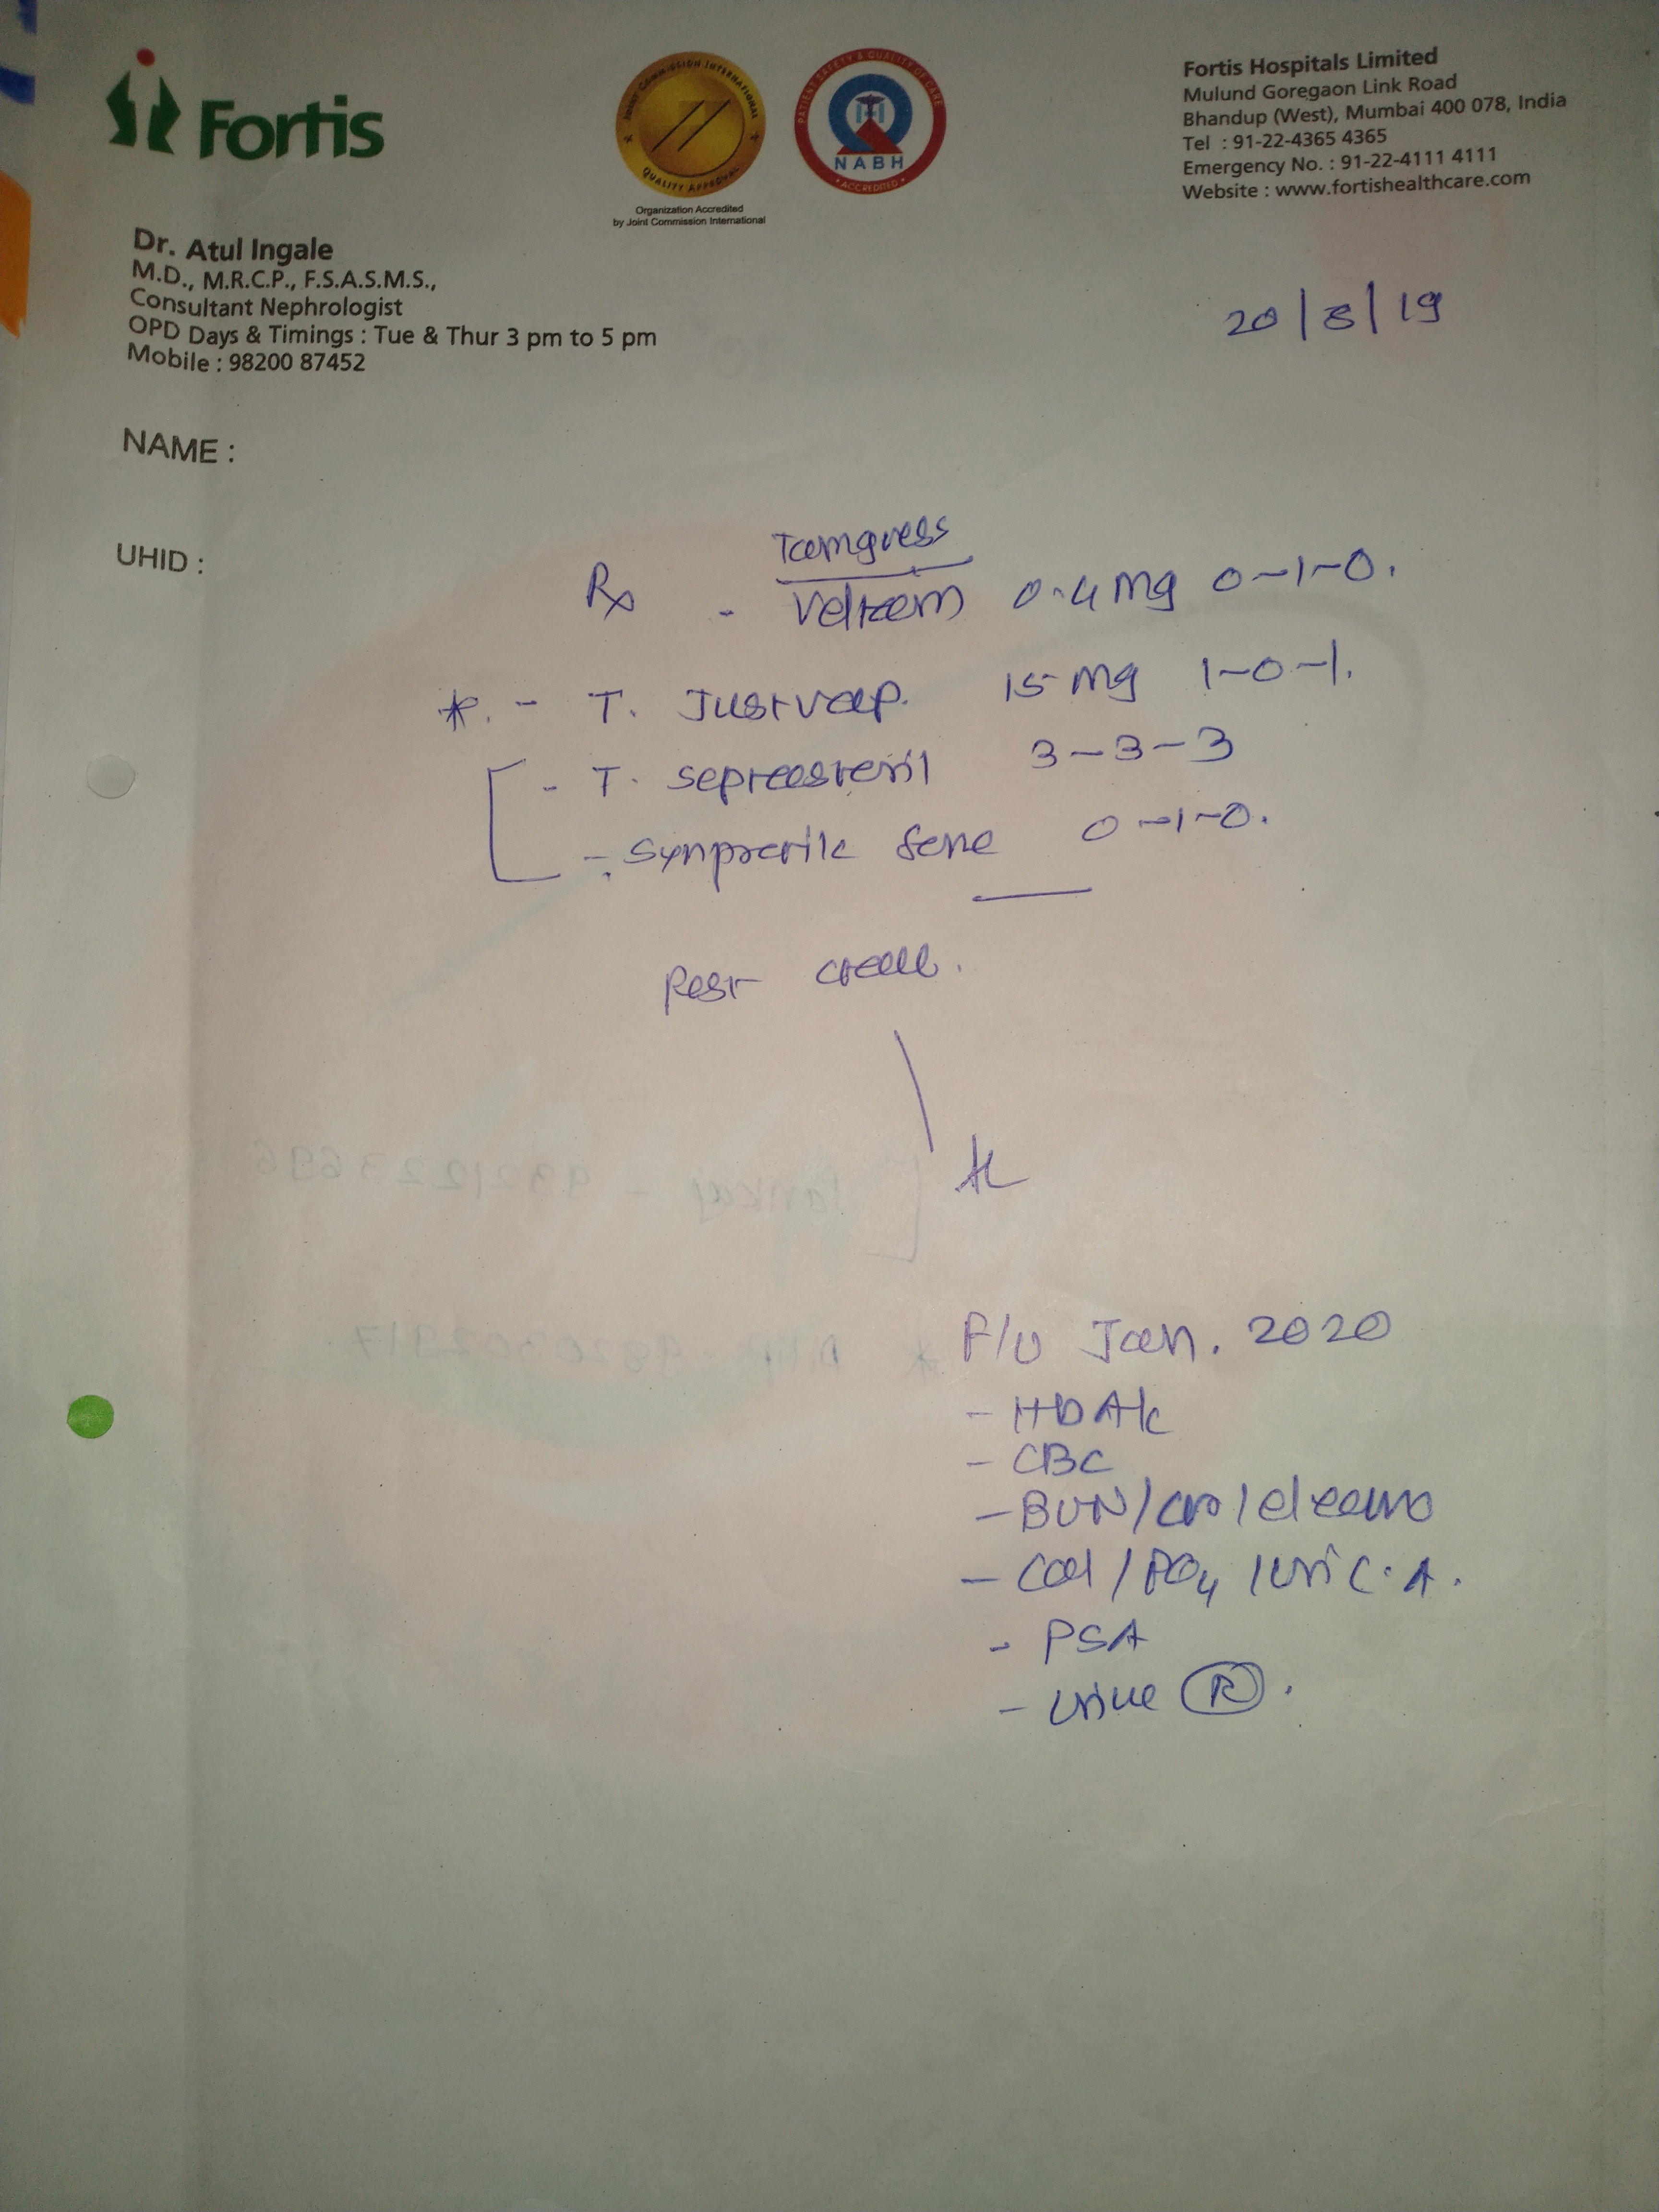 Fortis
JOINT COMMISSION INTERNATIONAL
QUALITY APPROVAL
Organization Accredited
by Joint Commission International
PATIENT SAFETY & QUALITY OF CARE
NABH
ACCREDITED
Fortis Hospitals Limited
Mulund Goregaon Link Road
Bhandup (West), Mumbai 400 078, India
Tel : 91-22-4365 4365
Emergency No. : 91-22-4111 4111
Website : www.fortishealthcare.com
Dr. Atul Ingale
M.D., M.R.C.P., F.S.A.S.M.S.,
Consultant Nephrologist
OPD Days & Timings : Tue & Thur 3 pm to 5 pm
Mobile : 98200 87452
20/8/19
NAME :
UHID :
Rx
- Veltam 0.4 mg 0-1-0.
*. - T. 15 mg 1-0-1.
- T. 3-3-3
- 0-1-0.
Rest
F/U Jan. 2020
- CBC
- BUN/
- Cal / PO4 / Uric. A.
- PSA
- Urine R.